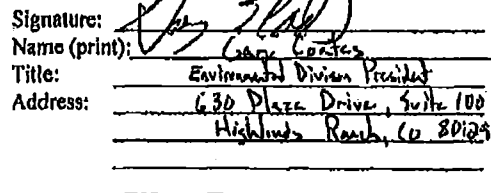 Signature:
Name (print): Gary Coates
Title: Environmental Division President
Address: 630 Plaza Drive, Suite 100
Highlands Ranch, Co 80129